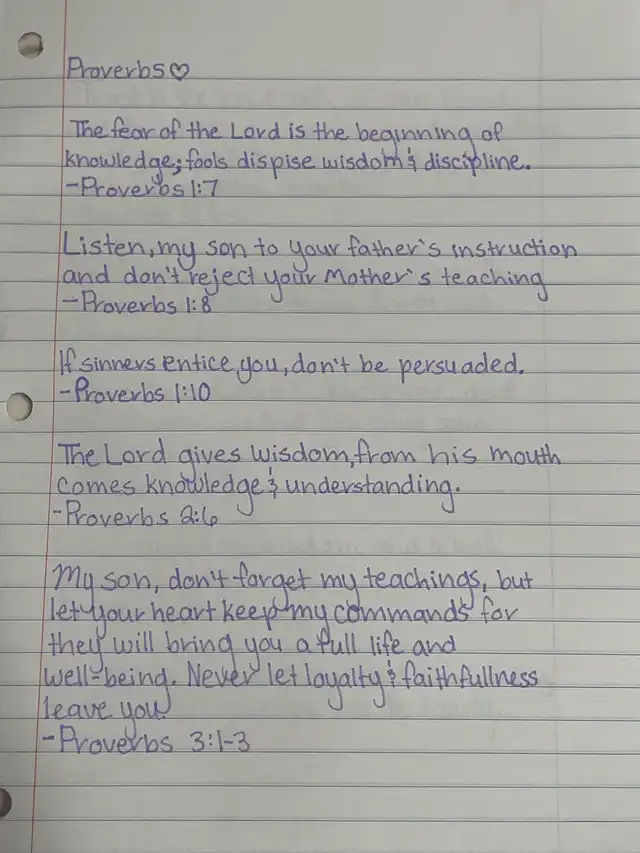 Proverbs♡
The fear of the Lord is the beginning of
knowledge; fools dispise wisdom & discipline.
-Proverbs 1:7
Listen, my son to your father's instruction
and don't reject your Mother's teaching
-Proverbs 1:8
If sinners entice you, don't be persuaded.
-Proverbs 1:10
The Lord gives wisdom, from his mouth
comes knowledge & understanding.
-Proverbs 2:6
My son, don't forget my teachings, but
let your heart keep my commands for
they will bring you a full life and
well-being. Never let loyalty & faithfullness
leave you.
-Proverbs 3:1-3